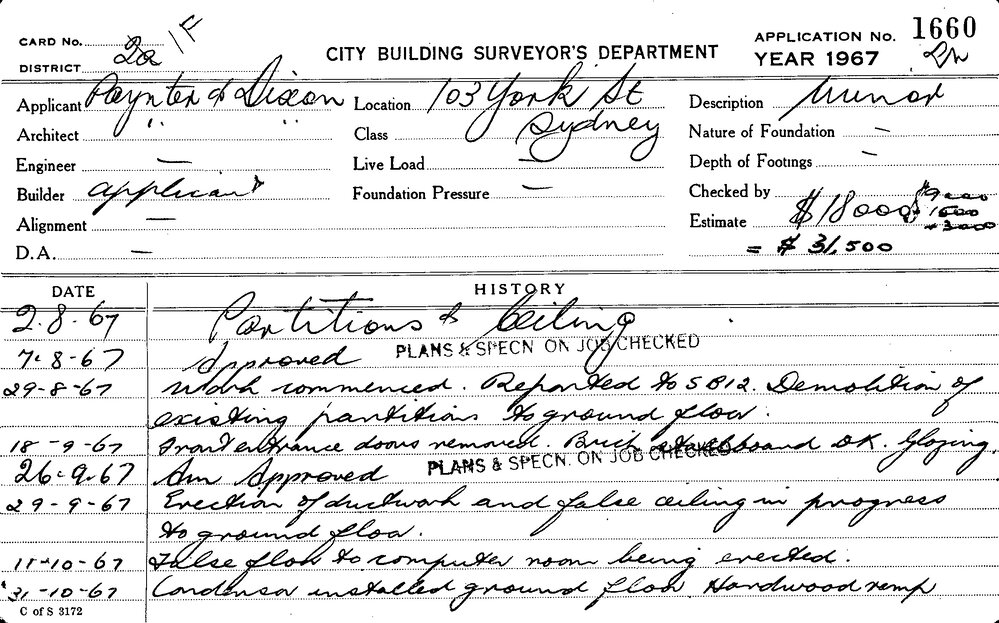 CARD No. 2a 1F
DISTRICT
CITY BUILDING SURVEYOR'S DEPARTMENT
APPLICATION No. 1660
YEAR 1967
Applicant Paynter & Dixon
Location 103 York St
Sydney
Description Minor
Architect " "
Class
Nature of Foundation —
Engineer —
Live Load —
Depth of Footings —
Builder applicant
Foundation Pressure —
Checked by
Alignment —
Estimate $18000
= $31,500
D.A. —
DATE HISTORY
2.8.67 Partitions & Ceiling
7.8-67 Approved PLANS & SPECN ON JOB CHECKED
29-8-67 Work commenced. Reported to SB12. Demolition of
existing partitions to ground floor.
18-9-67 Front entrance doors removed. Brick board OK. Glazing.
26.9.67 Am Approved PLANS & SPECN. ON JOB CHECKED
29-9-67 Erection of ductwork and false ceiling in progress
to ground floor.
11-10-67 False floor to computer room being erected.
31-10-67 Condensor installed ground floor. Hardwood ramp
C of S 3172